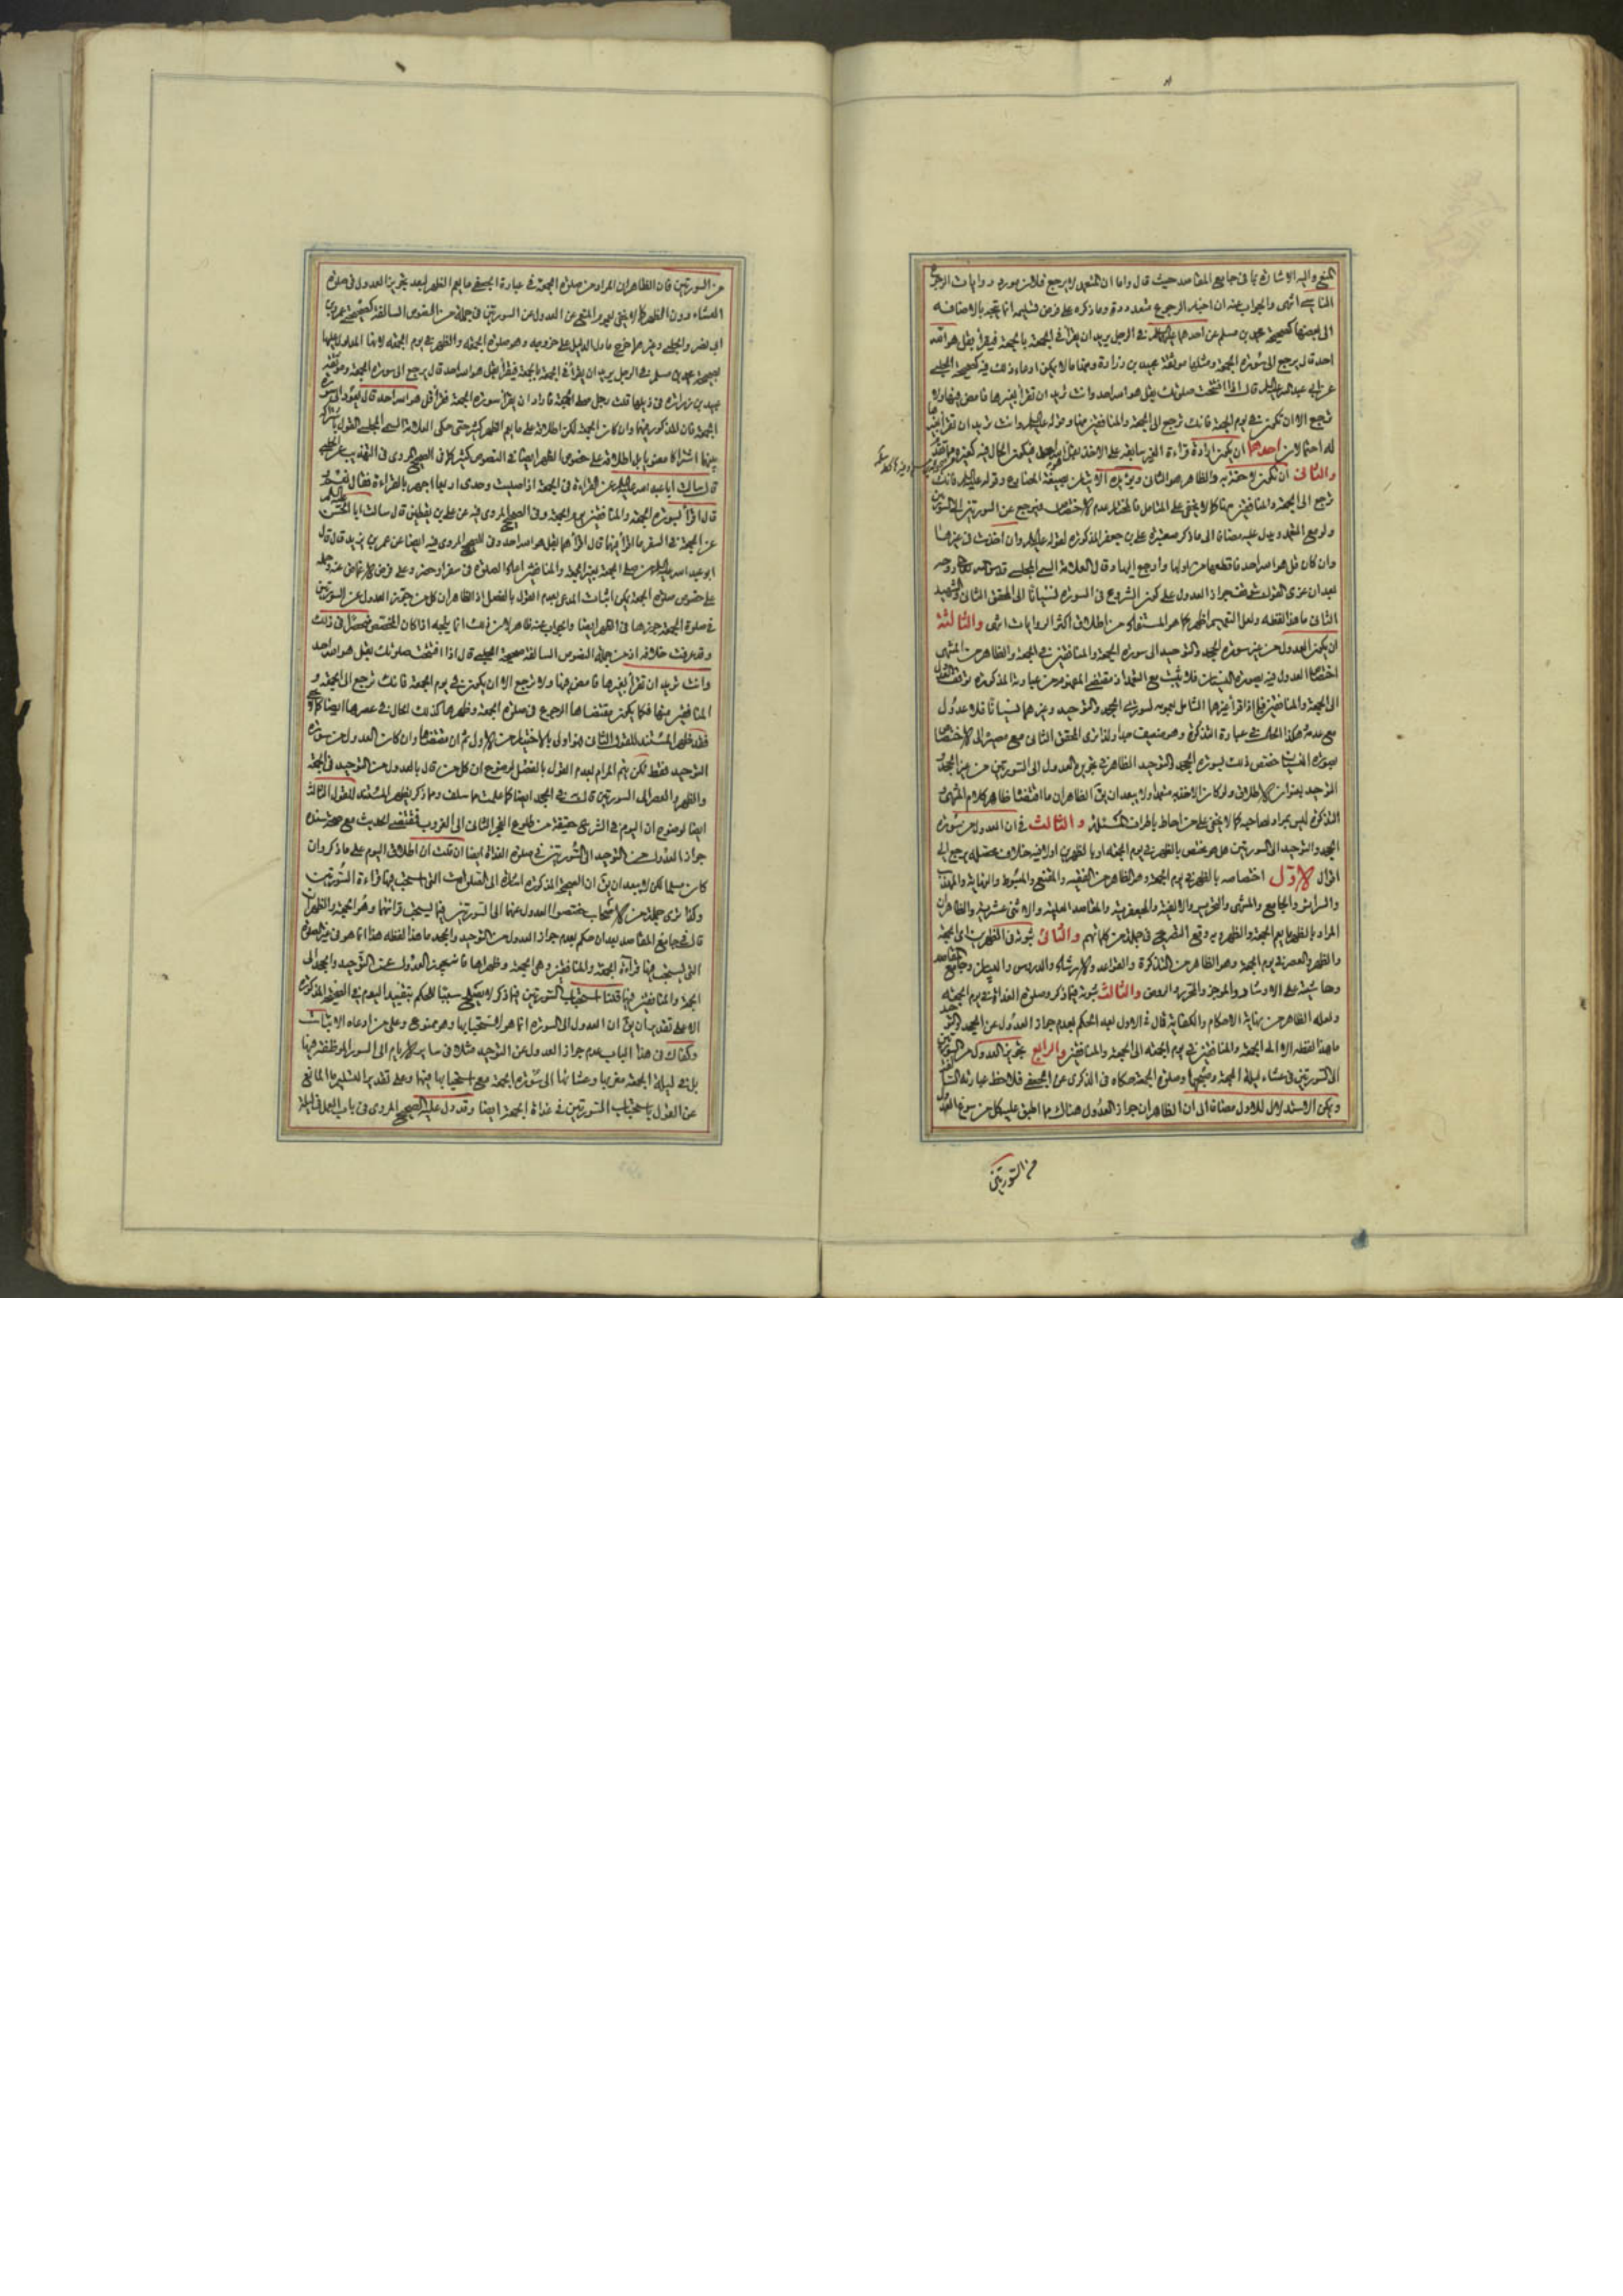 المنع واليه الاشارة بما في جامع المقاصد حيث قال واما ان المتعمد لا يرجع فلان مورد روايات الرجوع
الناسي انتهى والجواب عنه ان اخبار الرجوع متعددة وما ذكره على فرض تسليمه انما يتجه بالاضافة
الى بعضها كصحيحة محمد بن مسلم عن احدهما عليهما السلام في الرجل يريد ان يقرأ في الجمعة بالجمعة فيقرأ بقل هو الله
احد قال يرجع الى سورة الجمعة ومثلها موثقة عبيد بن زرارة ومنها ما لا يمكن ادعاء ذلك فيه كصحيحة الحلبي
عن ابي عبد الله عليه السلام قال اذا افتتحت صلوتك بقل هو الله احد وانت تريد ان تقرأ بغيرها فامض فيها ولا
ترجع الا ان تكون في يوم الجمعة فانك ترجع الى الجمعة والمنافقين منها وقوله عليه السلام وانت تريد ان تقرأ بغيرها
له احتمالان احدهما ان يكون ارادة قراءة الغير سابقة على الاخذ
والثاني ان تكون لاحقة به والظاهر هو الثاني
ترجع الى الجمعة والمنافقين منها كما لا يخفى على المتامل فالمختار عدم الاختصاص فيرجع عن السورتين الى السورتين
ولو مع التعمد ويدل عليه مضافا الى ما ذكر صحيحة علي بن جعفر المذكورة لقوله عليه السلام وان اخذت في غيرها
وان كان قل هو الله احد فاقطعها من اولها وارجع اليها وقال العلامة السمي المجلسي قدس الله
بعد ان عزى القول بتوقف جواز العدول على كون الشروع في السورة نسيانا الى المحقق الثاني والشهيد
الثاني ما هذا لفظه ولعل التعميم اظهر كما هو المستفاد من اطلاق اكثر الروايات انتهى والثالثة
ان يكون العدول من غير سورة الجحد والتوحيد الى سورة الجمعة والمنافقين في الجمعة والظاهر من المنتهى
اختصاص العدول فيه بصورة النسيان فلا يثبت مع التعمد اذ مقتضى المفهوم من عبارته المذكورة توقف النقل
الى الجمعة والمنافقين فيما اذا قرأ غيرهما الشامل بعمومه لسورتي الجحد والتوحيد وغيرهما نسيانا فلا عدول
مع عدمه هكذا الحال في عبارة التذكرة وهو ضعيف جدا ولذا ترى المحقق الثاني مع مصيره الى الاختصاص
بصورة النسيان خص ذلك بسورة الجحد والتوحيد الظاهر في تجويزه العدول الى السورتين من غير الجحد
التوحيد بعنوان الاطلاق ولو كان الاخذ به متعمدا ولا يبعد ان يق الظاهر ان ما اقتضاه ظاهر كلام المنتهى
التذكرة ليس بمراد لصاحبه كما لا يخفى على من احاط باطراف المسئلة والثالث في ان العدول من سورة
الجحد والتوحيد الى السورتين هل هو مختص بالظهر في يوم الجمعة او بالظهرين او لا فيه خلاف محصله يرجع الى
اقوال الاول اختصاصه بالظهر في يوم الجمعة وهو الظاهر من الفقيه والمقنع والمبسوط والنهاية والمهذب
والسرائر والجامع والمنتهى والتحرير والالفية والجعفرية والمقاصد العلية والاثني عشرية والظاهر ان
المراد بالظهر ما يعم الجمعة والظهر وبه وقع التصريح في جملة من كلماتهم والثاني ثبوته في الظهرين اي الجمعة
والظهر والعصر في يوم الجمعة وهو الظاهر من التذكرة والقواعد والارشاد والدروس والبيان وجامع المقاصد
وحاشيته على الارشاد والموجز والتحرير والروض والثالث ثبوته فيما ذكر وصلوة الغداة في يوم الجمعة
ولعله الظاهر من نهاية الاحكام والكفاية قال في الاول بعد الحكم بعدم جواز العدول عن الجحد والتوحيد
ما هذا لفظه الا الى الجمعة والمنافقين في يوم الجمعة الى الجمعة والمنافقين والرابع تجويز العدول من السورتين
الى السورتين في عشاء ليلة الجمعة وصبحها وصلوة الجمعة حكاه في الذكرى عن الجعفي فلاحظ عبارته السالفة
ويمكن الاستدلال للاول مضافا الى ان الظاهر ان جواز العدول هناك مما اطبق عليه كل من سوغ العدول
من السورتين
من السورتين فان الظاهر ان المراد من صلوة الجمعة في عبارة الجعفي ما يعم الظهر لبعد تجويز العدول في صلوة
العشاء دون الظهر كما لا يخفى بعموم المنع عن العدول عن السورتين في جملة من النصوص السالفة كصحيحة عمرو بن
ابي نصر والحلبي وغيرهما خرج ما دل الدليل على خروجه وهو صلوة الجمعة والظهر في يوم الجمعة لانها المدلول عليها
بصحيحة محمد بن مسلم في الرجل يريد ان يقرأ في الجمعة بالجمعة فيقرأ بقل هو الله احد قال يرجع الى سورة الجمعة وموثقة
عبيد بن زرارة في ذيلها قلت رجل صلى الجمعة فاراد ان يقرأ سورة الجمعة فقرأ قل هو الله احد قال يعود الى سورة
الجمعة فان المذكور فيهما وان كان الجمعة لكن اطلاقه على ما يعم الظهر كثير حتى حكى العلامة السمي المجلسي القول باشتراك
بينهما اشتراكا معنويا بل اطلاقه على خصوص الظهر ايضا في النصوص كثير كما في الصحيح المروي في التهذيب عن الحلبي
قال سالت ابا عبد الله عليه السلام عن القراءة في الجمعة اذا صليت وحدي اربعا اجهر بالقراءة فقال نعم
قال اقرأ بسورة الجمعة والمنافقين يوم الجمعة وفي الصحيح المروي فيه عن علي بن يقطين قال سالت ابا الحسن عليه السلام
عن الجمعة في السفر ما اقرأ فيهما قال اقرأهما بقل هو الله احد وفي الصحيح المروي فيه ايضا عن عمر بن يزيد قال قال
ابو عبد الله عليه السلام من صلى الجمعة بغير الجمعة والمنافقين اعاد الصلوة في سفر او حضر وعلى فرض الاغماض عنه وحمله
على خصوص صلوة الجمعة يمكن اثبات المدعى بعدم القول بالفصل اذ الظاهر ان كل من جوز العدول عن السورتين
في صلوة الجمعة جوزها في الظهر ايضا والجواب عنه ظاهر لان ذلك انما يتجه اذا كان المخصص منحصرا في ذلك
وقد عرفت خلافه اذ من جملة النصوص السالفة صحيحة الحلبي قال اذا افتتحت صلوتك بقل هو الله احد
وانت تريد ان تقرأ بغيرها فامض فيها ولا ترجع الا ان يكون في يوم الجمعة فانك ترجع الى الجمعة و
المنافقين منها فكما يكون مقتضاها الرجوع في صلوة الجمعة وظهرها كذلك الحال في عصرها ايضا
فقد ظهر المستند للقول الثاني هو اولى بالاختيار من الاول ثم ان مقتضاها وان كان العدول من سورة
التوحيد فقط لكن يتم المرام بعدم القول بالفصل لوضوح ان كل من قال بالعدول من التوحيد في الجمعة
والظهر والعصر الى السورتين قال في الجحد ايضا كما علمت مما سلف ومما ذكر يظهر المستند للقول الثالث
ايضا لوضوح ان اليوم في الشرع حقيقة من طلوع الفجر الثاني الى الغروب فمقتضى الحديث مع صحة سنده
جواز العدول من التوحيد الى السورتين في صلوة الغداة ايضا ان قلت ان اطلاق اليوم على ما ذكر وان
كان مسلما لكن لا يبعد ان يق ان الصحيحة المذكورة اشارة الى الصلوات التي استحب فيها قراءة السورتين
وكذا ترى جملة من الاصحاب خصصوا العدول عنهما الى السورتين فيما يستحب قرائتهما وهو الجمعة والظهران
قال في جامع المقاصد بعد ان حكم بعدم جواز العدول من التوحيد والجحد ما هذا لفظه هذا انما هو في غير الصلوة
التي يستحب فيها قراءة الجمعة والمنافقين وهي الجمعة وظهراها فاستحب العدول عن التوحيد والجحد الى
الجمعة والمنافقين فيها قلنا استحباب السورتين فيما ذكر لا يصلح سببا للحكم بتقييد اليوم في الصحيحة المذكورة
الا على تقدير ان يق ان العدول الى السورة انما هو لاستحبابها وهو ممنوع وعلى من ادعاه الاثبات
وكفاك في هذا الباب عدم جواز العدول عن التوحيد مثلا في ساير الايام الى السور الموظفة فيها
بل في ليلة الجمعة مغربها وعشائها الى سورة الجمعة مع استحبابها فيها وعلى تقدير التسليم ما المانع
عن القول باستحباب السورتين في غداة الجمعة ايضا وقد دل عليه الصحيح المروي في باب العمل في ليلة